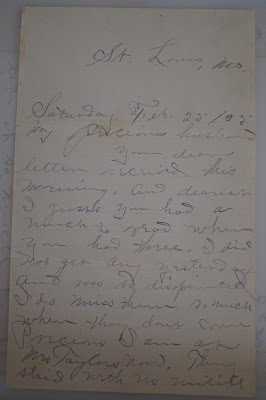 St. Louis, Mo.
Saturday Feb. 25 '05
My precious husband
Your dear
letter received this
morning. And dearest
I guess you had a
much to read when
you had three. I did
not get any yesterday
and was so disappointed
I do miss them so much
when they dont come
Precious I am at
Mrs Taylors now. They
staid with us untill